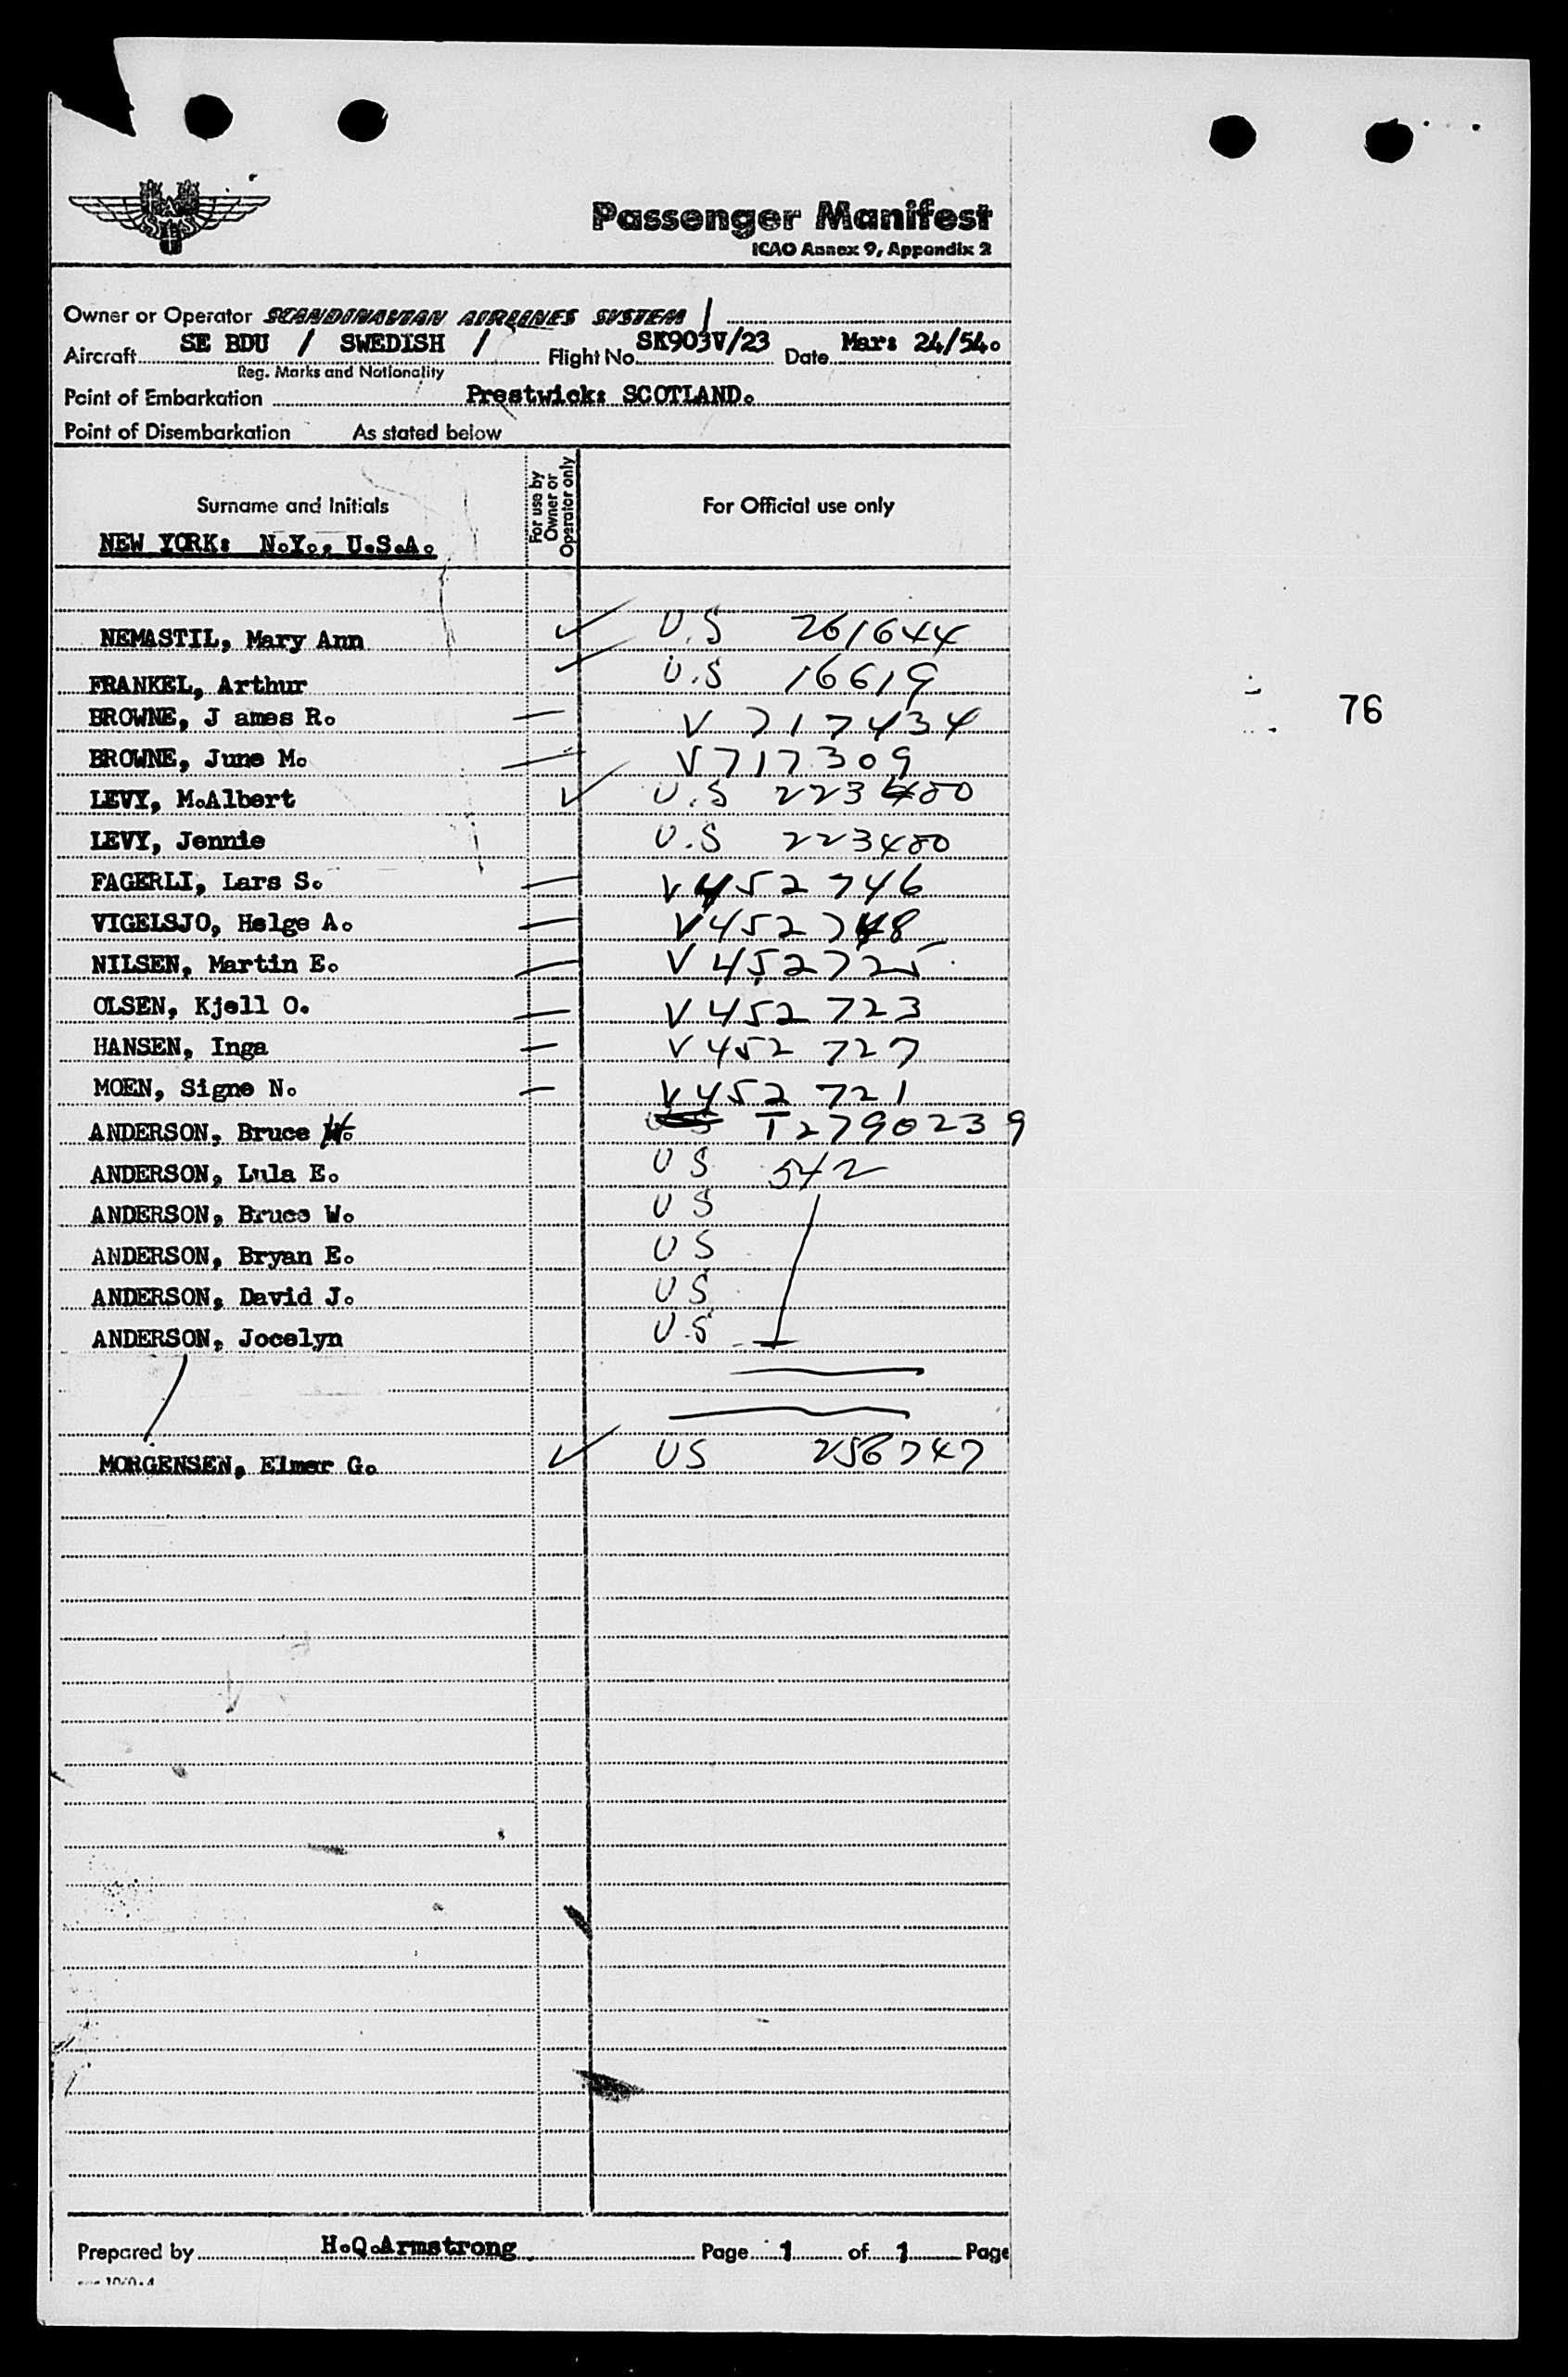 Passenger Manifest
ICAO Annex 9, Appendix 2
Owner or Operator SCANDINAVIAN AIRLINES SYSTEM /
Aircraft SE BDU / SWEDISH / Flight No. SK903V/23 Date Mar: 24/54.
Reg. Marks and Nationality
Point of Embarkation Prestwick: SCOTLAND.
Point of Disembarkation As stated below
Surname and Initials For use by Owner or Operator only For Official use only
NEW YORK: N.Y., U.S.A.
NEMASTIL, Mary Ann ✓ U.S 261644
FRANKEL, Arthur ✓ U.S 16619
BROWNE, J ames R. — V 717434
BROWNE, June M. — V717309
LEVY, M.Albert ✓ U.S 223480
LEVY, Jennie U.S 223480
FAGERLI, Lars S. — V452746
VIGELSJO, Helge A. — V452748
NILSEN, Martin E. — V452725
OLSEN, Kjell O. — V452723
HANSEN, Inga — V452 727
MOEN, Signe N. — V452 721
ANDERSON, Bruce W. US T2790239
ANDERSON, Lula E. US 542
ANDERSON, Bruce W. US
ANDERSON, Bryan E. US
ANDERSON, David J. US
ANDERSON, Jocelyn U.S
MORGENSEN, Elmer G. ✓ US 256747
76
Prepared by H.Q.Armstrong Page 1 of 1 Page